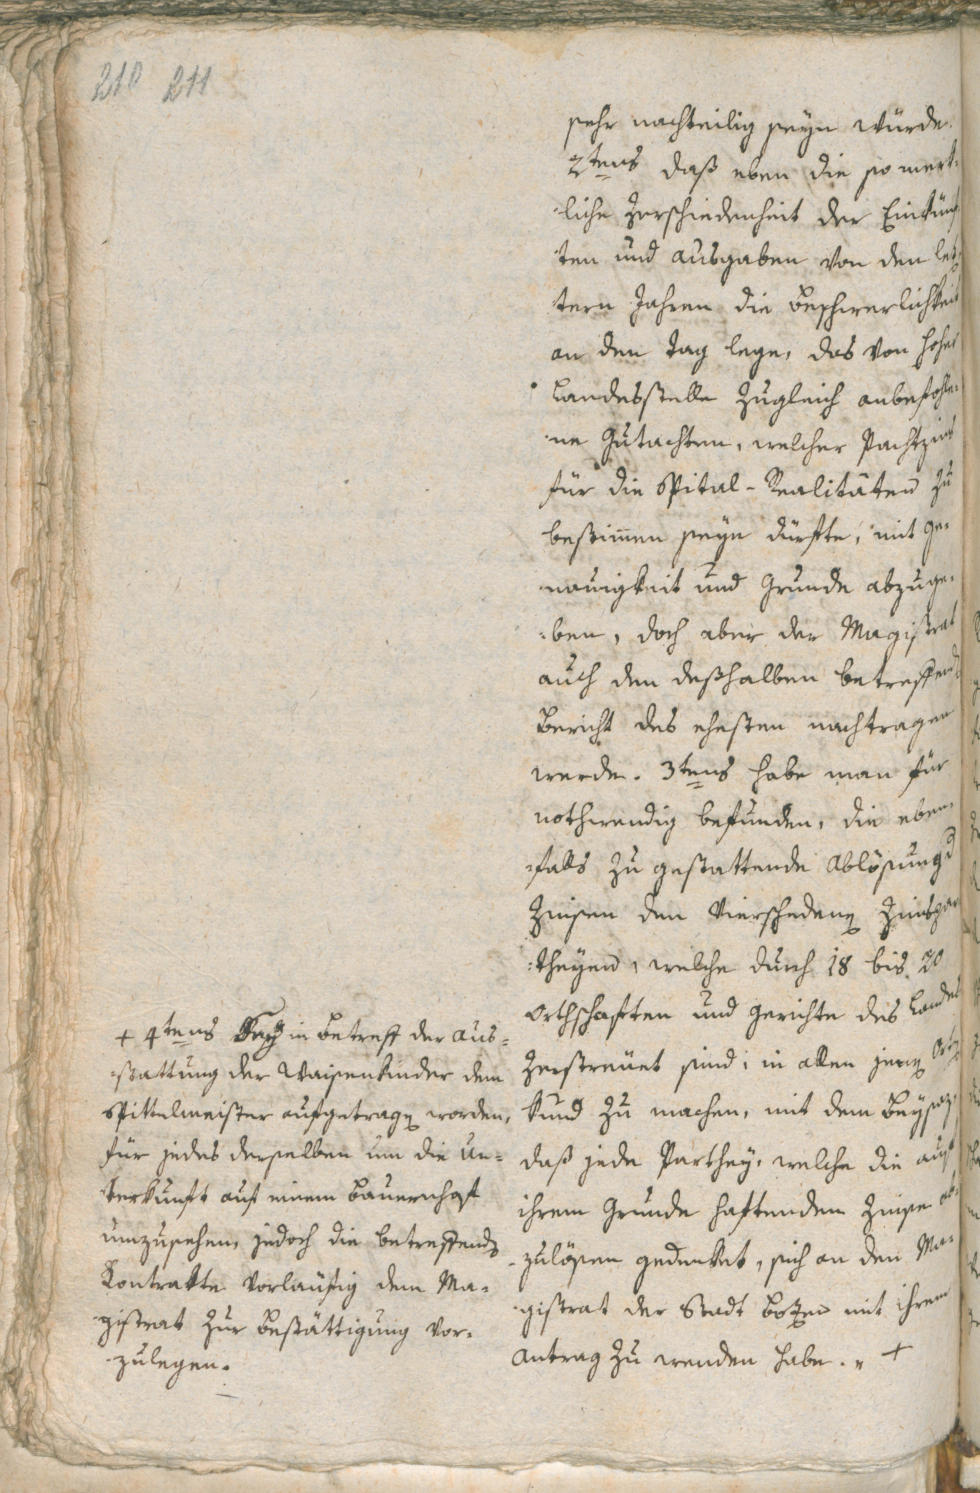 210 211
sehr nachteilig seyn würde.
2tens daß eben die so merk-
-liche Zerschiedenheit der Einkünf
-ten und ausgaben von den letz
-tern Jahren die Beschwerlichkeit
an den tag lege, das von hoher
Landesstelle zugleich anbefohle-
-ne Gutachten, welcher Pachtzins
für die Spital-Realitäten zu
bestim̄en seyn dürfte, mit ge-
-nauigkeit und Grunde abzuge-
-ben, doch aber der Magistrat
auch den deßhalben betreffend
Bericht des ehesten nachtragen
werde. 3tens habe man für
nothwendig befunden, die eben-
-falls zu gestattende Ablösung d
Zinsen den Zinspar
-theyen, welche durch 18 bis 20
Orthschaften und gerichte des Landes
zerstreuet sind, in allen jenen
kund zu machen, mit dem Beysaz,
daß jede Parthey, welche die auf
ihrem Grunde haftenden Zinse ab-
-zulösen gedenket, sich an den Ma-
-gistrat der Stadt Botzen mit ihrem
Antrag zu wenden habe. „ +
+ 4tens Sey in Betreff der Aus-
-stattung der Waisenkinder dem
Spittelmeister aufgetragen worden,
für jedes derselben um die Un-
-terkunft auf einem Bauernhof
umzusehen, jedoch die betreffende
Kontrakte vorläufig dem Ma-
-gistrat zur Bestättigung vor-
-zulegen.